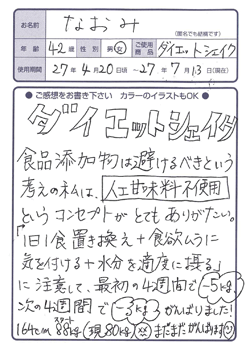 お名前 なおみ
(匿名でも結構です)
年齢 42歳 性別 男・女 ご使用商品 ダイエットシェイク
使用期間 27年4月20日頃〜27年7月13日(現在)
●ご感想をお書き下さい カラーのイラストもOK●
ダイエットシェイク
食品添加物は避けるべきという
考えの私は、人工甘味料不使用
というコンセプトがとてもありがたい。
「1日1食置き換え+食欲ムラに
気を付ける+水分を適度に摂る」
に注意して、最初の4週間で-5kg、
次の4週間で-3kgがんばりました!
スタート
164cm 88kg(現80kg)まだまだがんばります